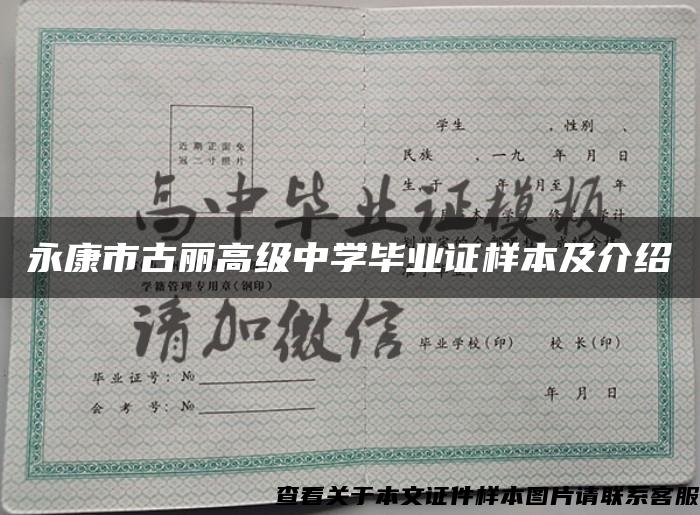 近期正面免
冠二寸照片
学籍管理专用章(钢印)
毕业证号：№
会考号：№
学生 ，性别 、
民族 ，一九 年 月 日
生，于 年 月至 年
毕业学校(印) 校长(印)
年 月 日
高中毕业证模板
请加微信
永康市古丽高级中学毕业证样本及介绍
查看关于本文证件样本图片请联系客服